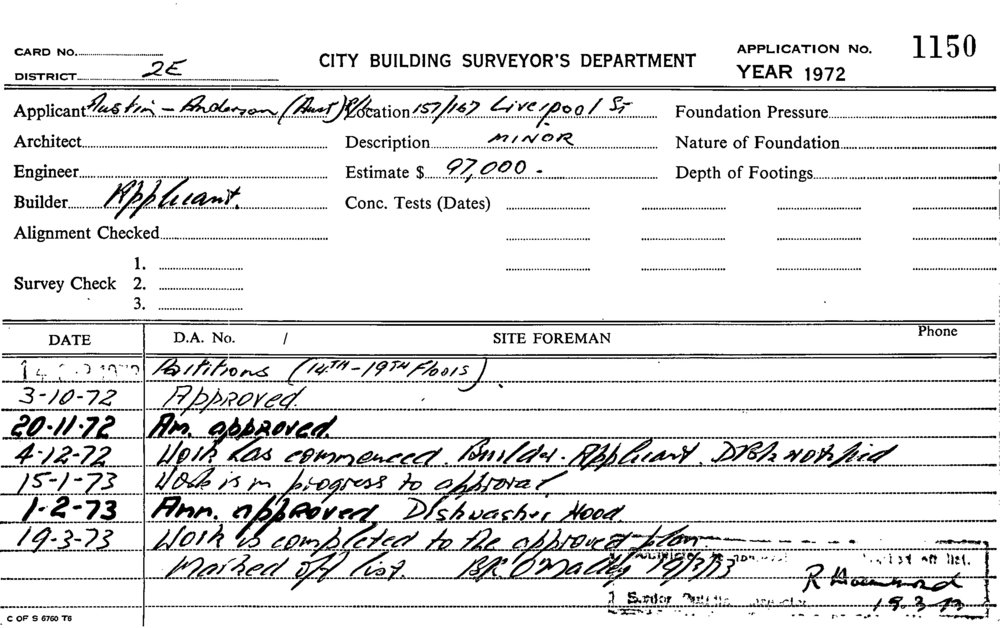 CARD No. APPLICATION No. 1150
CITY BUILDING SURVEYOR'S DEPARTMENT
DISTRICT 2E YEAR 1972
Applicant Austin - Anderson (Aust) P/L Location 157/167 Liverpool St Foundation Pressure
Architect Description MINOR Nature of Foundation
Engineer Estimate $ 97,000 - Depth of Footings
Builder Applicant. Conc. Tests (Dates)
Alignment Checked
1.
Survey Check 2.
3.
DATE D.A. No. / SITE FOREMAN Phone
Partitions (14TH - 19TH Floors)
3-10-72 Approved.
20-11-72 Am. approved.
4-12-72 Work has commenced. Builder - Applicant. notified
15-1-73 Work is in progress to approval
1-2-73 Amm. approved Dishwasher Hood.
19-3-73 Work is completed to the approved plan
Marked off list. O'Malley 19/3/73
R
Senior
19.3.73
C OF S 6760 T6